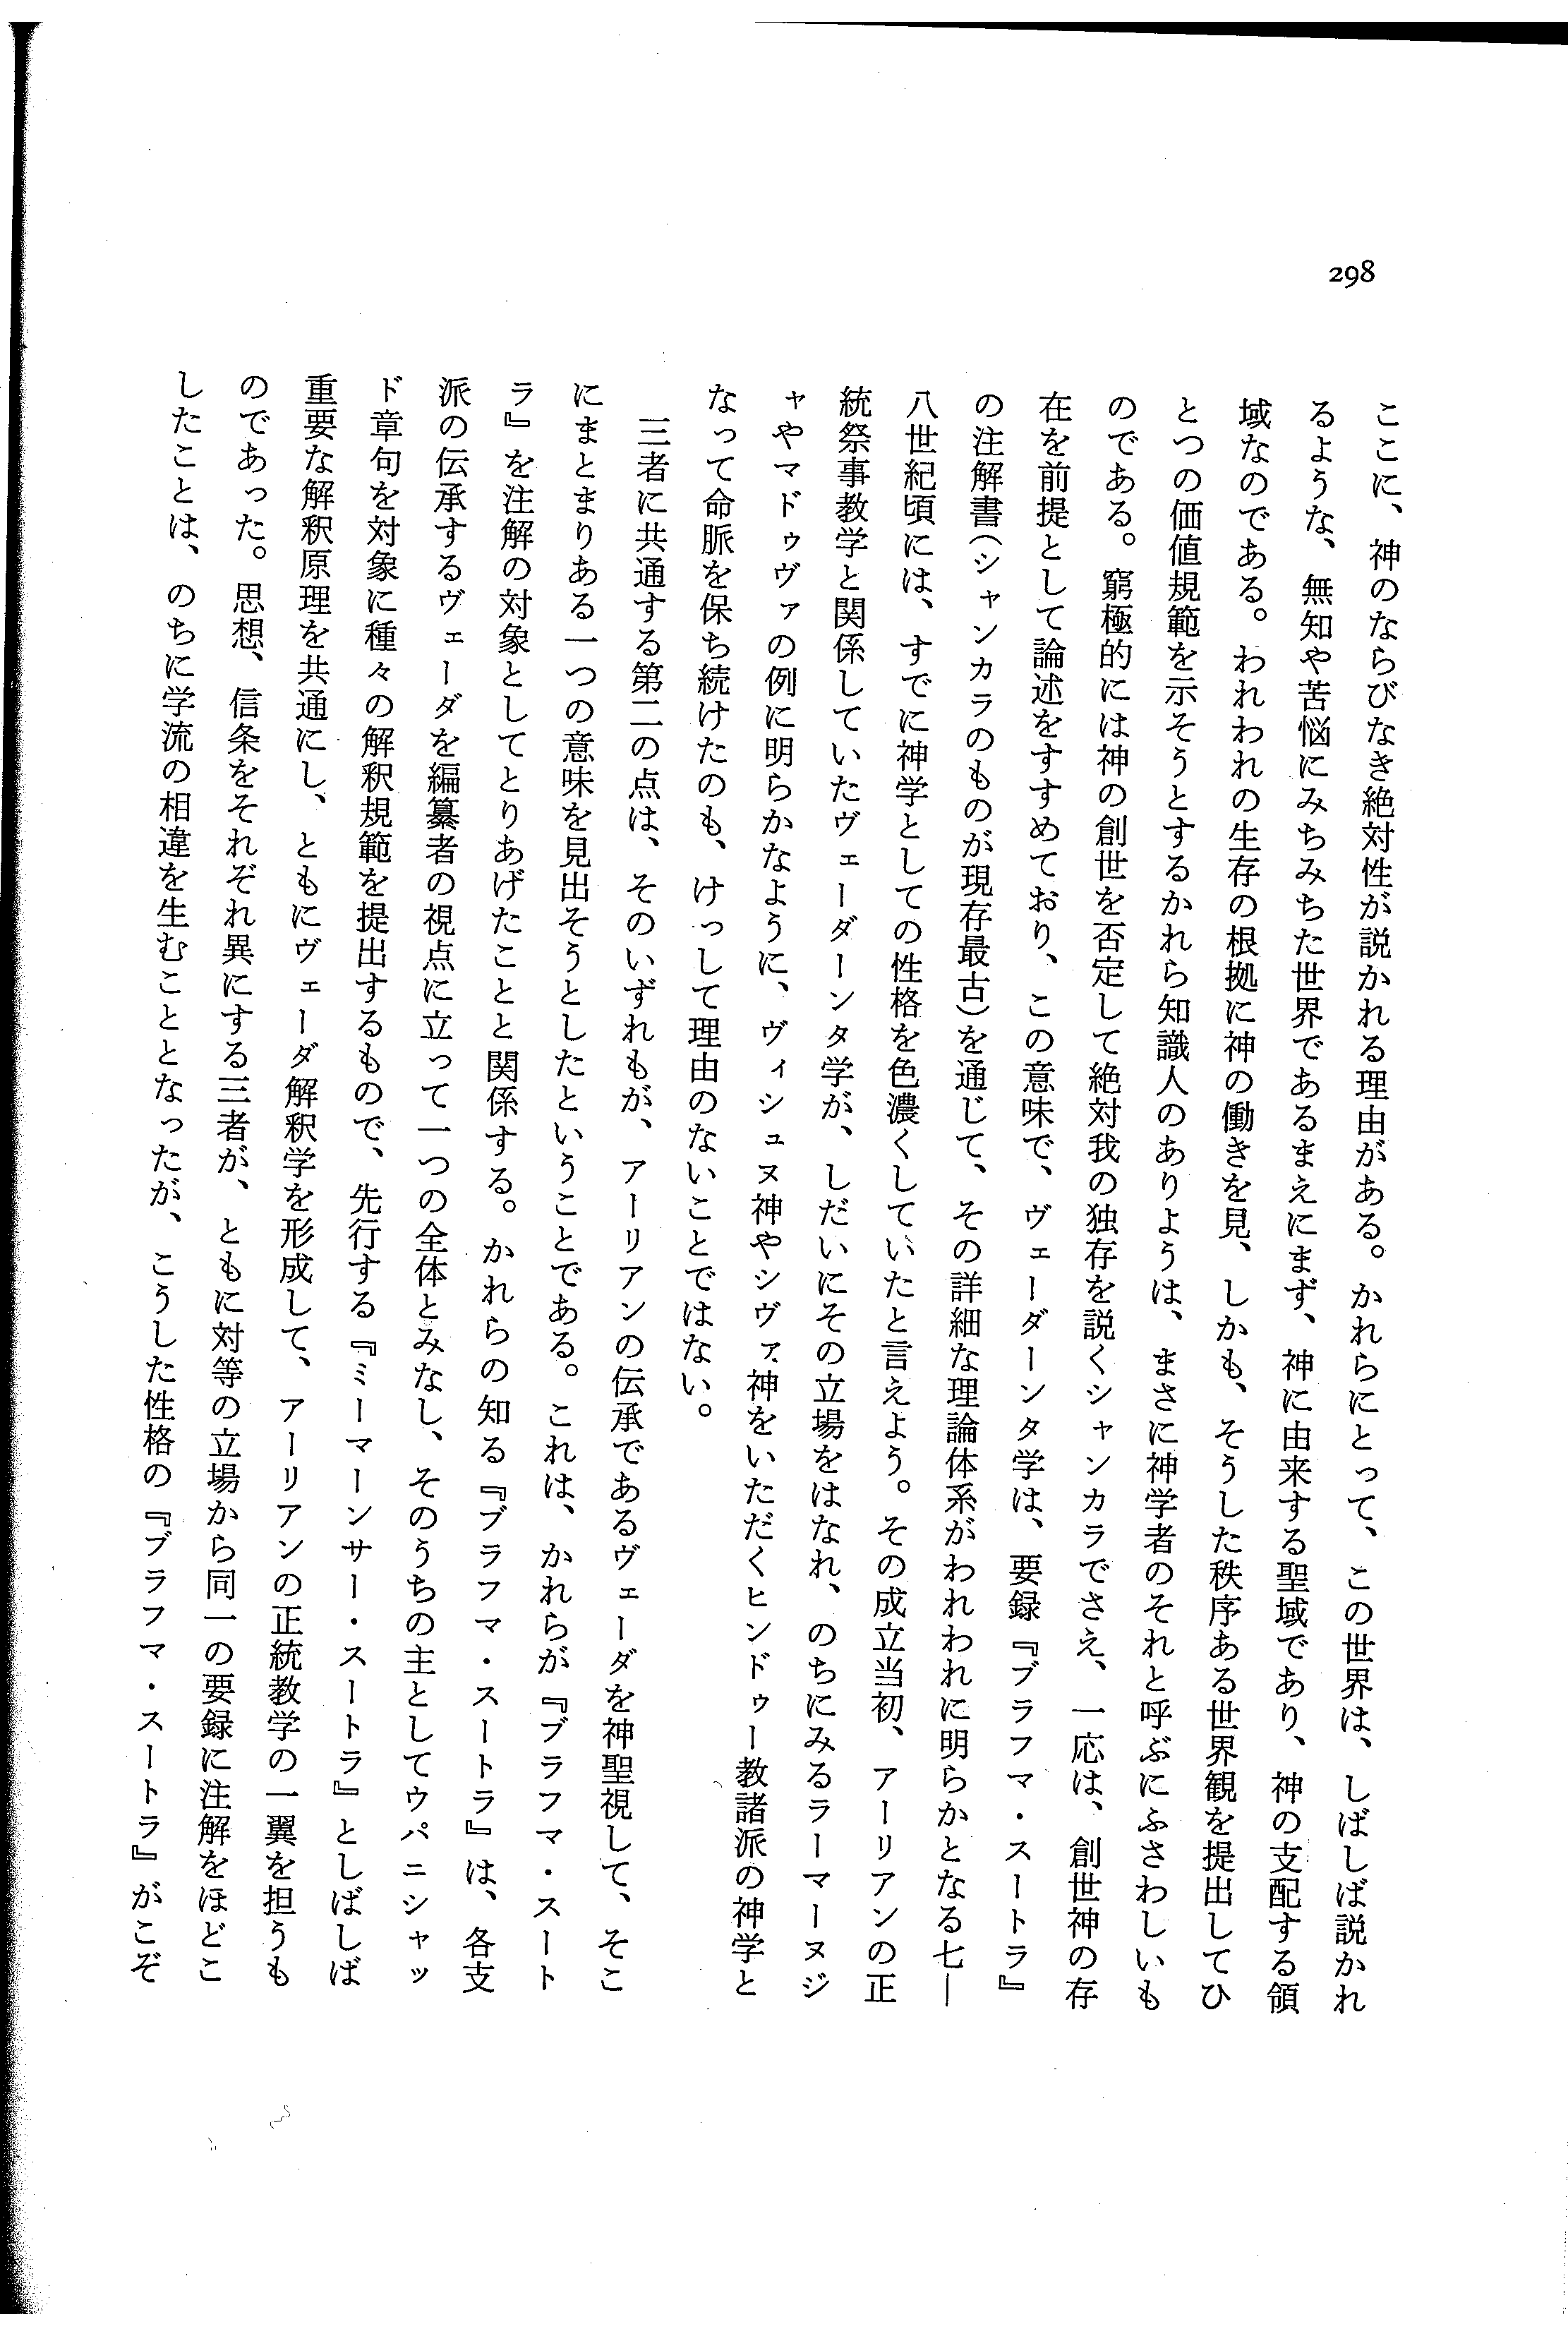 298
ここに、神のならびなき絶対性が説かれる理由がある。かれらにとって、この世界は、しばしば説かれ
るような、無知や苦悩にみちみちた世界であるまえにまず、神に由来する聖域であり、神の支配する領
域なのである。われわれの生存の根拠に神の働きを見、しかも、そうした秩序ある世界観を提出してひ
とつの価値規範を示そうとするかれら知識人のありようは、まさに神学者のそれと呼ぶにふさわしいも
のである。窮極的には神の創世を否定して絶対我の独存を説くシャンカラでさえ、一応は、創世神の存
在を前提として論述をすすめており、この意味で、ヴェーダーンタ学は、要録『ブラフマ・スートラ』
の注解書(シャンカラのものが現存最古)を通じて、その詳細な理論体系がわれわれに明らかとなる七―
八世紀頃には、すでに神学としての性格を色濃くしていたと言えよう。その成立当初、アーリアンの正
統祭事教学と関係していたヴェーダーンタ学が、しだいにその立場をはなれ、のちにみるラーマーヌジ
ャやマドゥヴァの例に明らかなように、ヴィシュヌ神やシヴァ神をいただくヒンドゥー教諸派の神学と
なって命脈を保ち続けたのも、けっして理由のないことではない。
三者に共通する第二の点は、そのいずれもが、アーリアンの伝承であるヴェーダを神聖視して、そこ
にまとまりある一つの意味を見出そうとしたということである。これは、かれらが『ブラフマ・スート
ラ』を注解の対象としてとりあげたことと関係する。かれらの知る『ブラフマ・スートラ』は、各支
派の伝承するヴェーダを編纂者の視点に立って一つの全体とみなし、そのうちの主としてウパニシャッ
ド章句を対象に種々の解釈規範を提出するもので、先行する『ミーマーンサー・スートラ』としばしば
重要な解釈原理を共通にし、ともにヴェーダ解釈学を形成して、アーリアンの正統教学の一翼を担うも
のであった。思想、信条をそれぞれ異にする三者が、ともに対等の立場から同一の要録に注解をほどこ
したことは、のちに学流の相違を生むこととなったが、こうした性格の『ブラフマ・スートラ』がこぞ